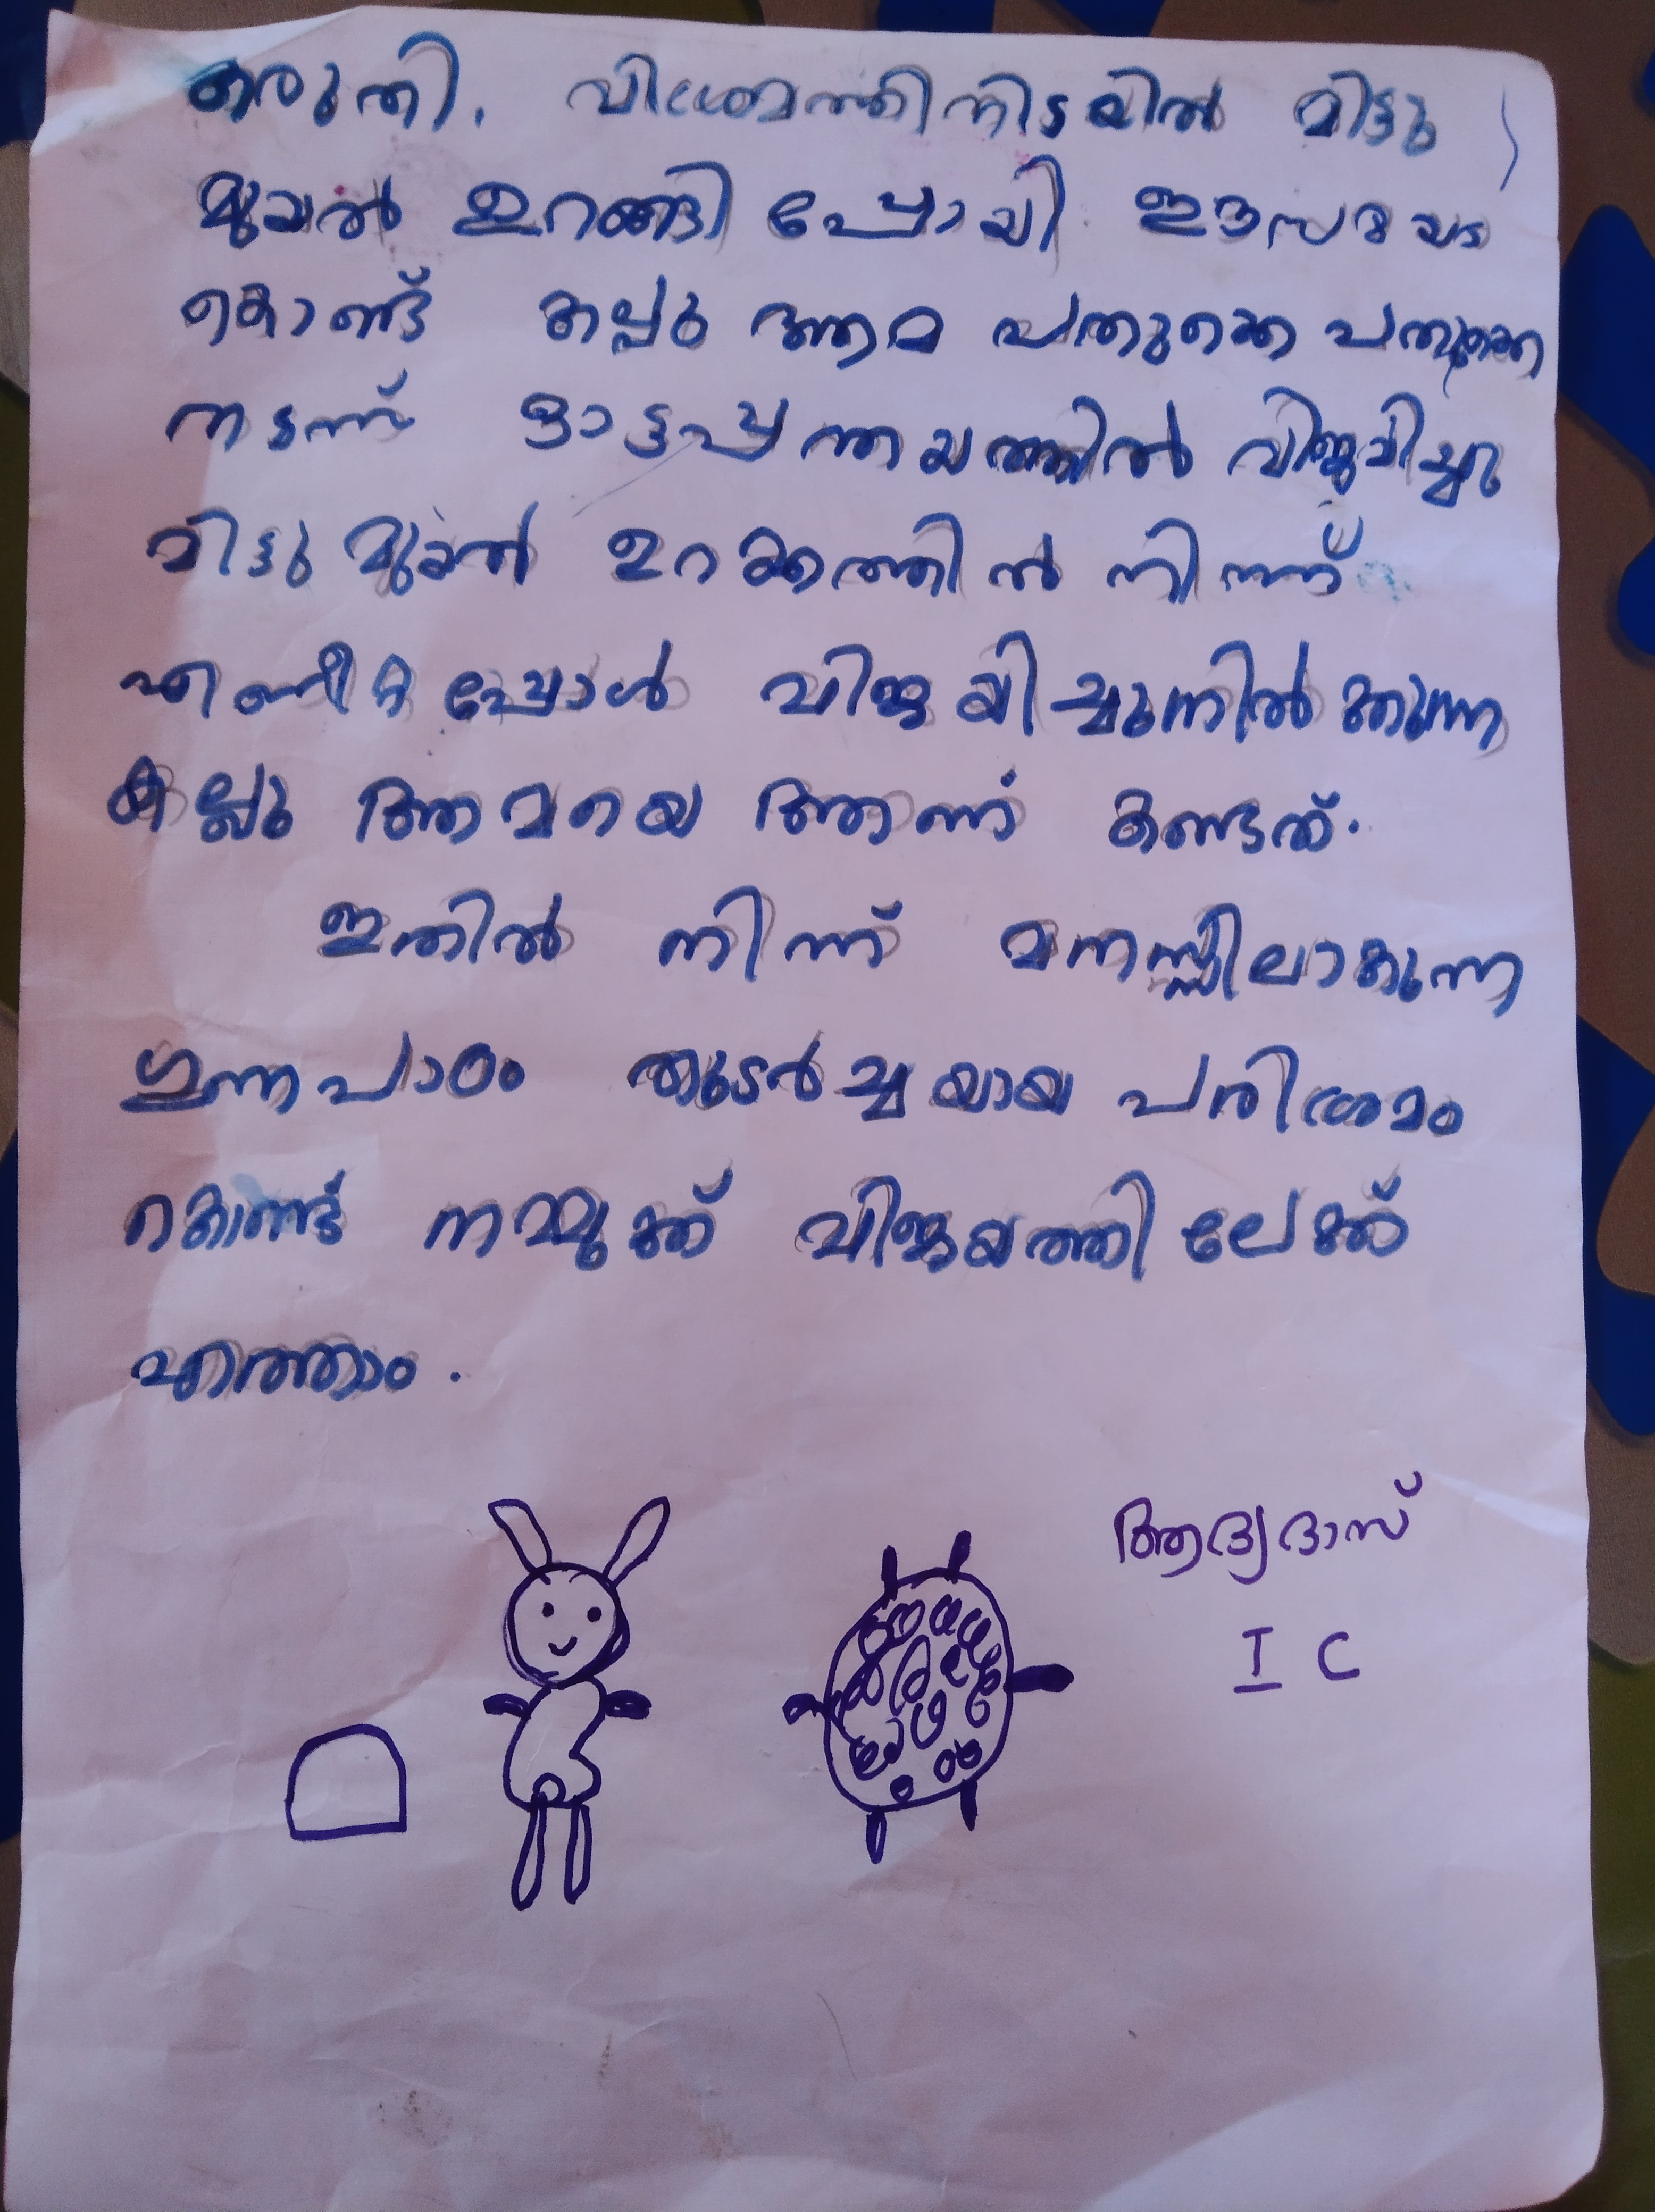 കരുതി. വിശ്രമത്തിനിടയിൽ മിട്ടു
മുയൽ ഉറങ്ങി പ്പോയി ഈസമയം
കൊണ്ട് കല്ലു ആമ പതുക്കെ പതുക്കെ
നടന്ന് ഓട്ടപ്പന്തയത്തിൽ വിജയിച്ചു
മിട്ടു മുയൽ ഉറക്കത്തിൽ നിന്ന്
എണീറ്റപ്പോൾ വിജയിച്ചുനിൽക്കുന്ന
കല്ലു ആമയെ ആണ് കണ്ടത്.
ഇതിൽ നിന്ന് മനസ്സിലാകുന്ന
ഗുന്നപാഠം തുടർച്ചയായ പരിശ്രമം
കൊണ്ട് നമ്മുക്ക് വിജയത്തിലേക്ക്
എത്താം.
ആദ്യദാസ്
I C